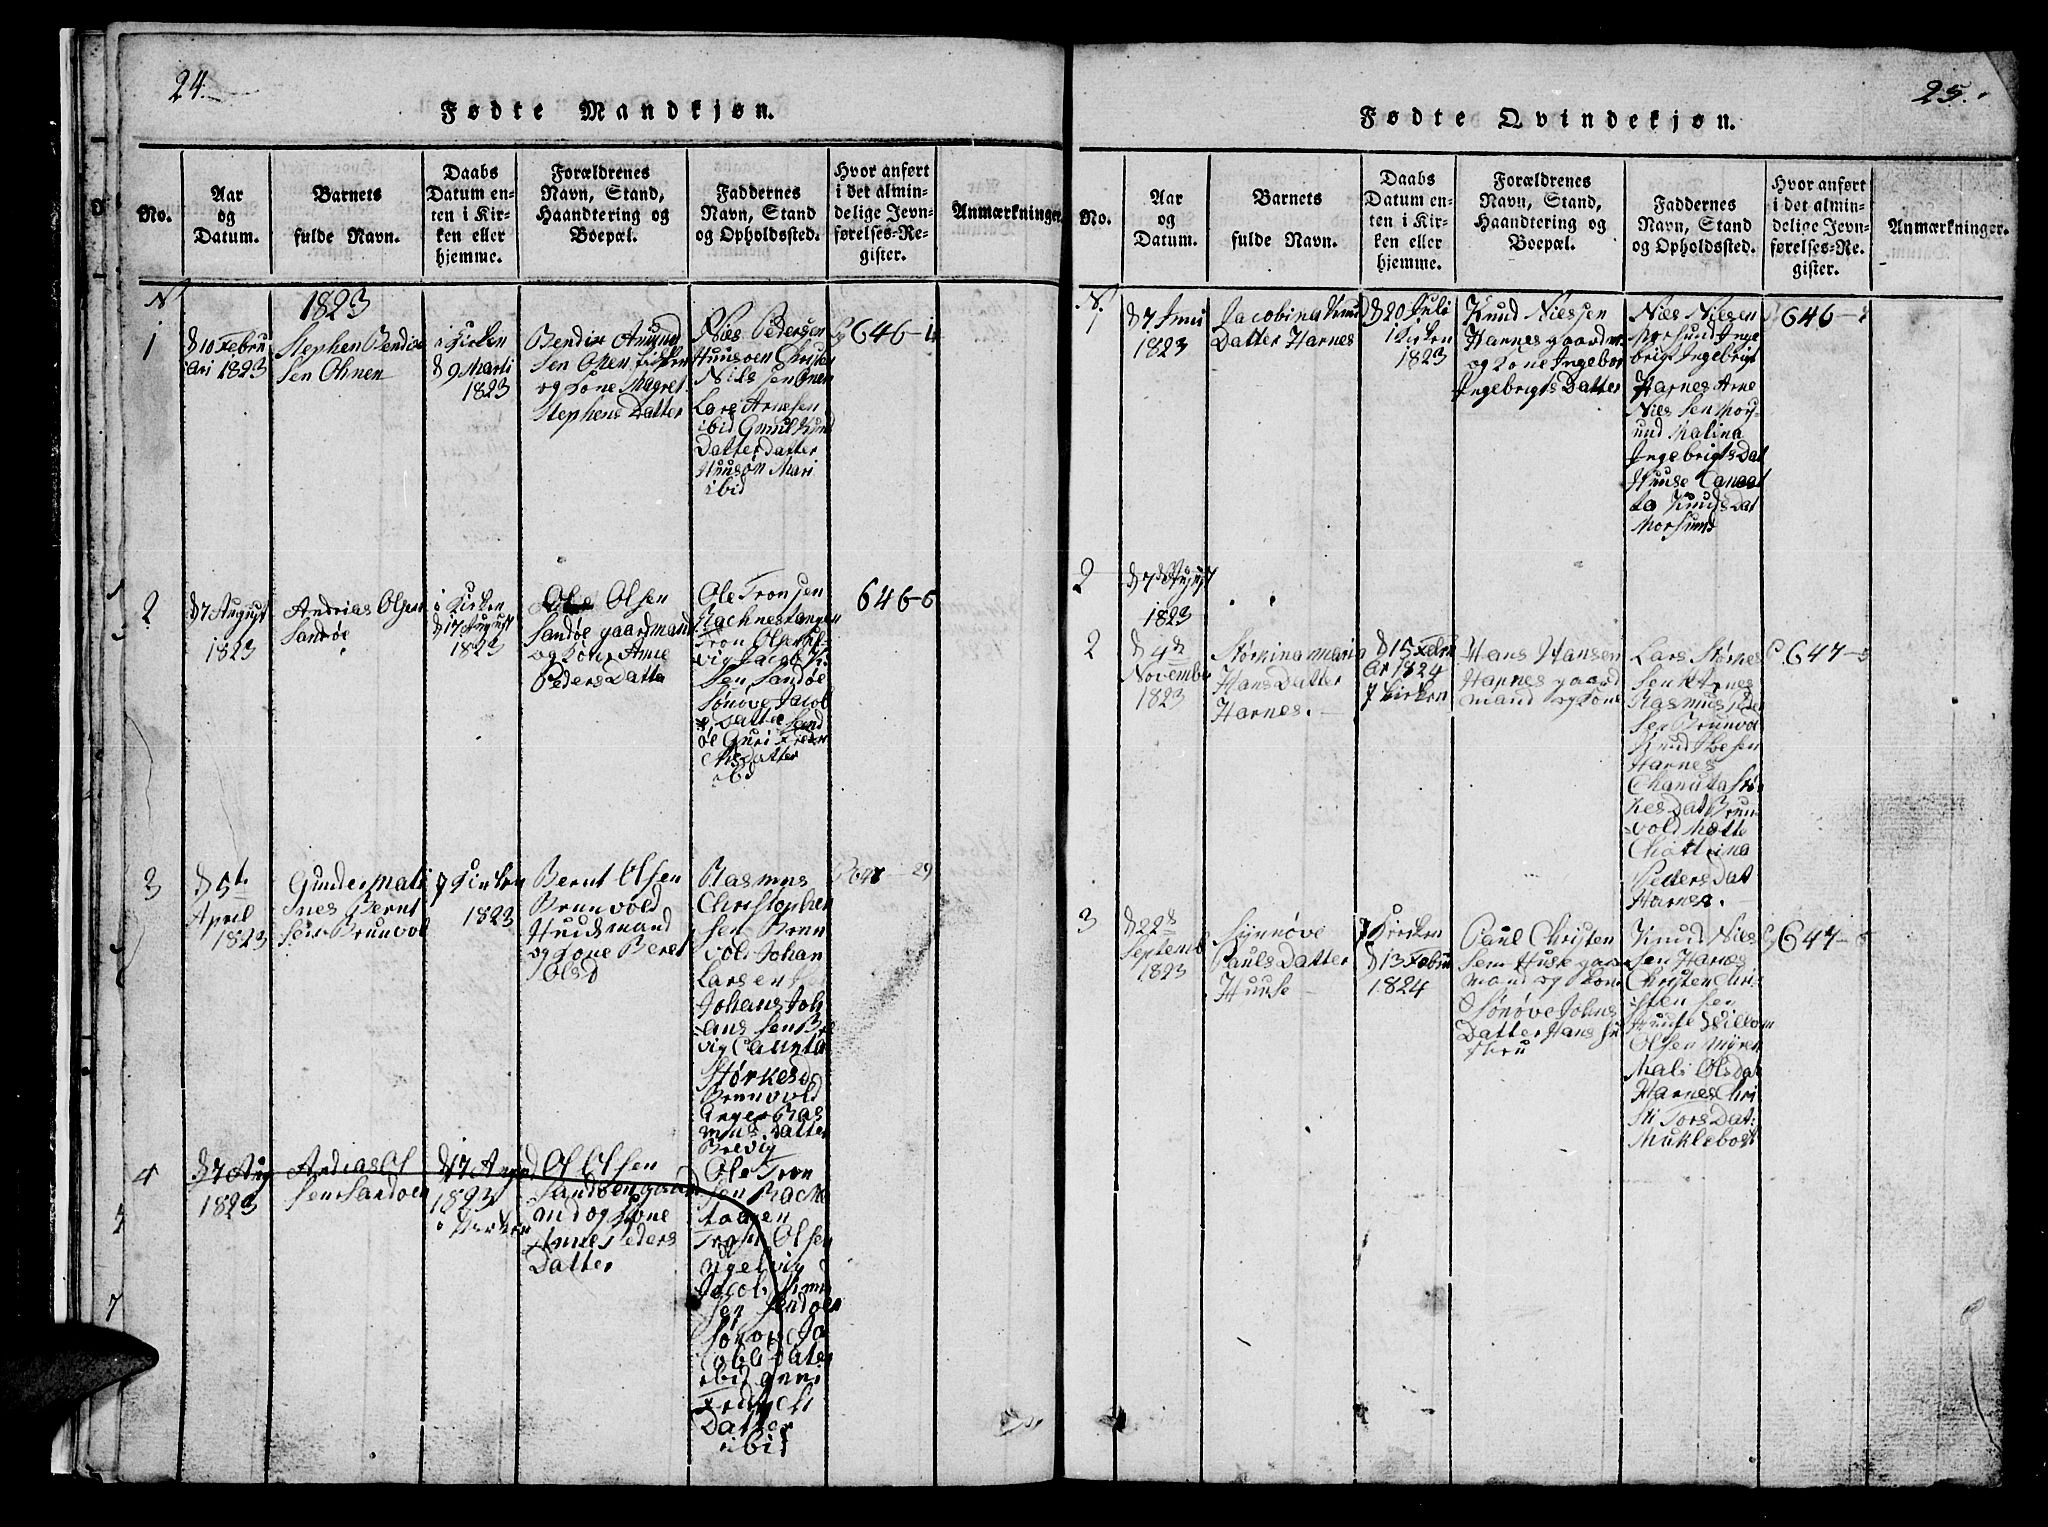 24.
Fødte Mandkjøn.
No.
Aar
og
Datum.
Barnets
fulde Navn.
Daabs
Datum en-
ten i Kir-
ken eller
hjemme.
Forældrenes
Navn, Stand,
Haandtering og
Boepæl.
Faddernes
Navn, Stand
og Opholdssted.
Hvor anført
i det almin-
delige Jevn-
førelses-Re-
gister.
Anmærkninger.
N
1823
1
d 10 Febru
ari 1823
Stephen Bendix
Sen Ohnen
i Kirken
d 9 Marti
1823
Bendix Amund
Sen Ohnen
og Kone Magret
Stephens Datter
Niels Pedersen
Huusøen Christen
Nils Sen Ohnen
Lars Arnesen
ibid Gunil Knud
Datter Datter
Huusøn Mari
ibid
646-
2
d 7 August
1823
Andrias Olsen
Sandøe
i Kirken
d 17 August
1823
Ole Olsen
Sandøe gaardmand
og Kone Anne
Peders Datter
Ole Tronsen
Rachnestangen
Tron Olsen
vig Jacob
Sen Sandøe
Sønøve Jacob
Datter Sand
øe Guri Fredri
chs Datter
ibid
646-6
3
d 5t
April
1823
Gunder Mati
Snes Bernt
Sen Brunvol
i Kirken
1823
Bernt Olsen
Brunvold
Huusmand
og Kone Beret
Olsd
Rasmus
Christophen
Sen Brun
vold Johan
Larsen
Johans Joh
ans Sen
vig Caunta
Størkesd
Brunvold
Inger Ras
mus Datter
Brevig
29
4
d 7 Aug
1823
Andrias Ol
Sen Sandøen
d 17 Augu
1823
i Kirken
Ol Olsen
Sandøen gaard
md og Kone
Anne Peders
Datter
Ole Tron
Sen Rach
tangen
Tron Olsen
Ugelvig
Jacob Knud
Sen Sandøen
Sønøve Ja
cobb Dater
ibid
Fredrich
Datter
ibid
25.
Fødte Qvindekjøn.
No.
Aar
og
Datum.
Barnets
fulde Navn.
Daabs
Datum en-
ten i Kir-
ken eller
hjemme.
Forældrenes
Navn, Stand,
Haandtering og
Boepæl.
Faddernes
Navn, Stand
og Opholdssted.
Hvor anført
i det almin-
delige Jevn-
førelses-Re-
gister.
Anmærkninger.
N.
1
d 7 Juni
1823
Jacobina Knud
Datter Harnes
d 20 Juli
i Kirken
1823
Knud Nielsen
Harnes gaardm
og Kone Ingebor
Ingebrigts Datter
Niels Nielsen
Morsund Inge
brigt Ingebrigt
Harnes Arne
Niels Sen Mor-
sund Malina
Ingebrigts Dat
Huuse
Knuds Dat
Morsund
646-
2
d 7 August
1823
2
d 4th
November
1823
Størkina Maria
Hans Datter
Harnes.
d 15 Febr
ar 1824
i Kirken
Hans Hansen
Harnes gaard
mand og Kone
Lars Størkes
Sen Harnes
Rasmus Peder
Sen Brunvol
Knud Ibesen
Harnes
Chanuta Stør
kes Dat Brun
vold Mette
Chattrina
Peders Dat
Harnes.
647-5
3
d 22d
Septemb
1823
Synnøve
Pauls Datter
Huuse
i Kirken
d 13 Febru
1824
Paul Christen
Sen Huse gaar
mand og Kone
Sønøve Johns
Datter Hans Hu
stru
Knud Niels
Sen Harnes
Christen Chri-
sten Sen
Huuse Willom
Olsen Myren
Mali Olsdat
Harnes Chri
sti Tors Dat:
Myklebost
647-6